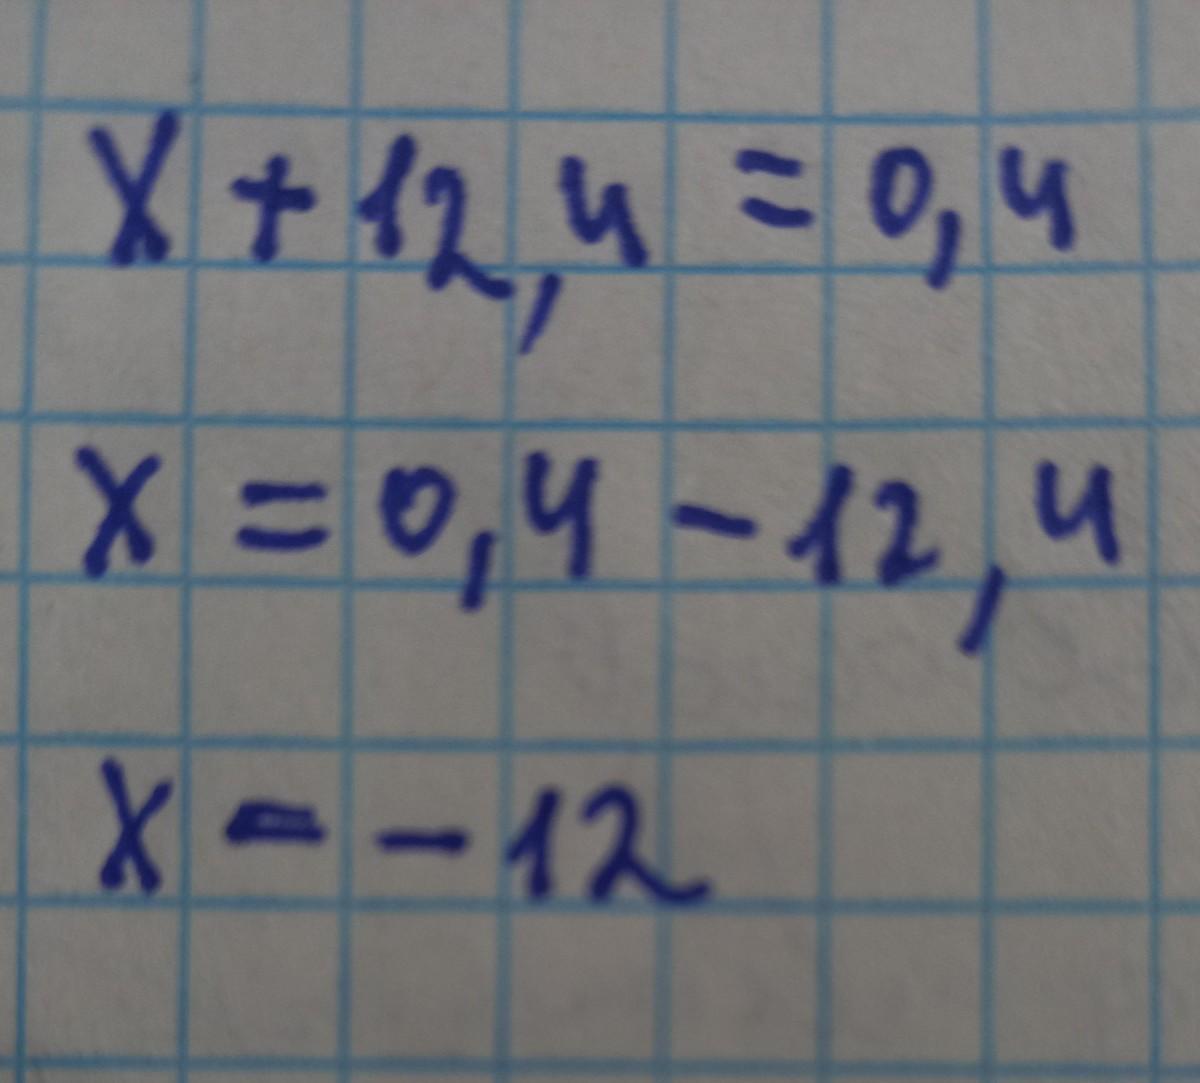 x + 12,4 = 0,4
x = 0,4 - 12,4
x = - 12